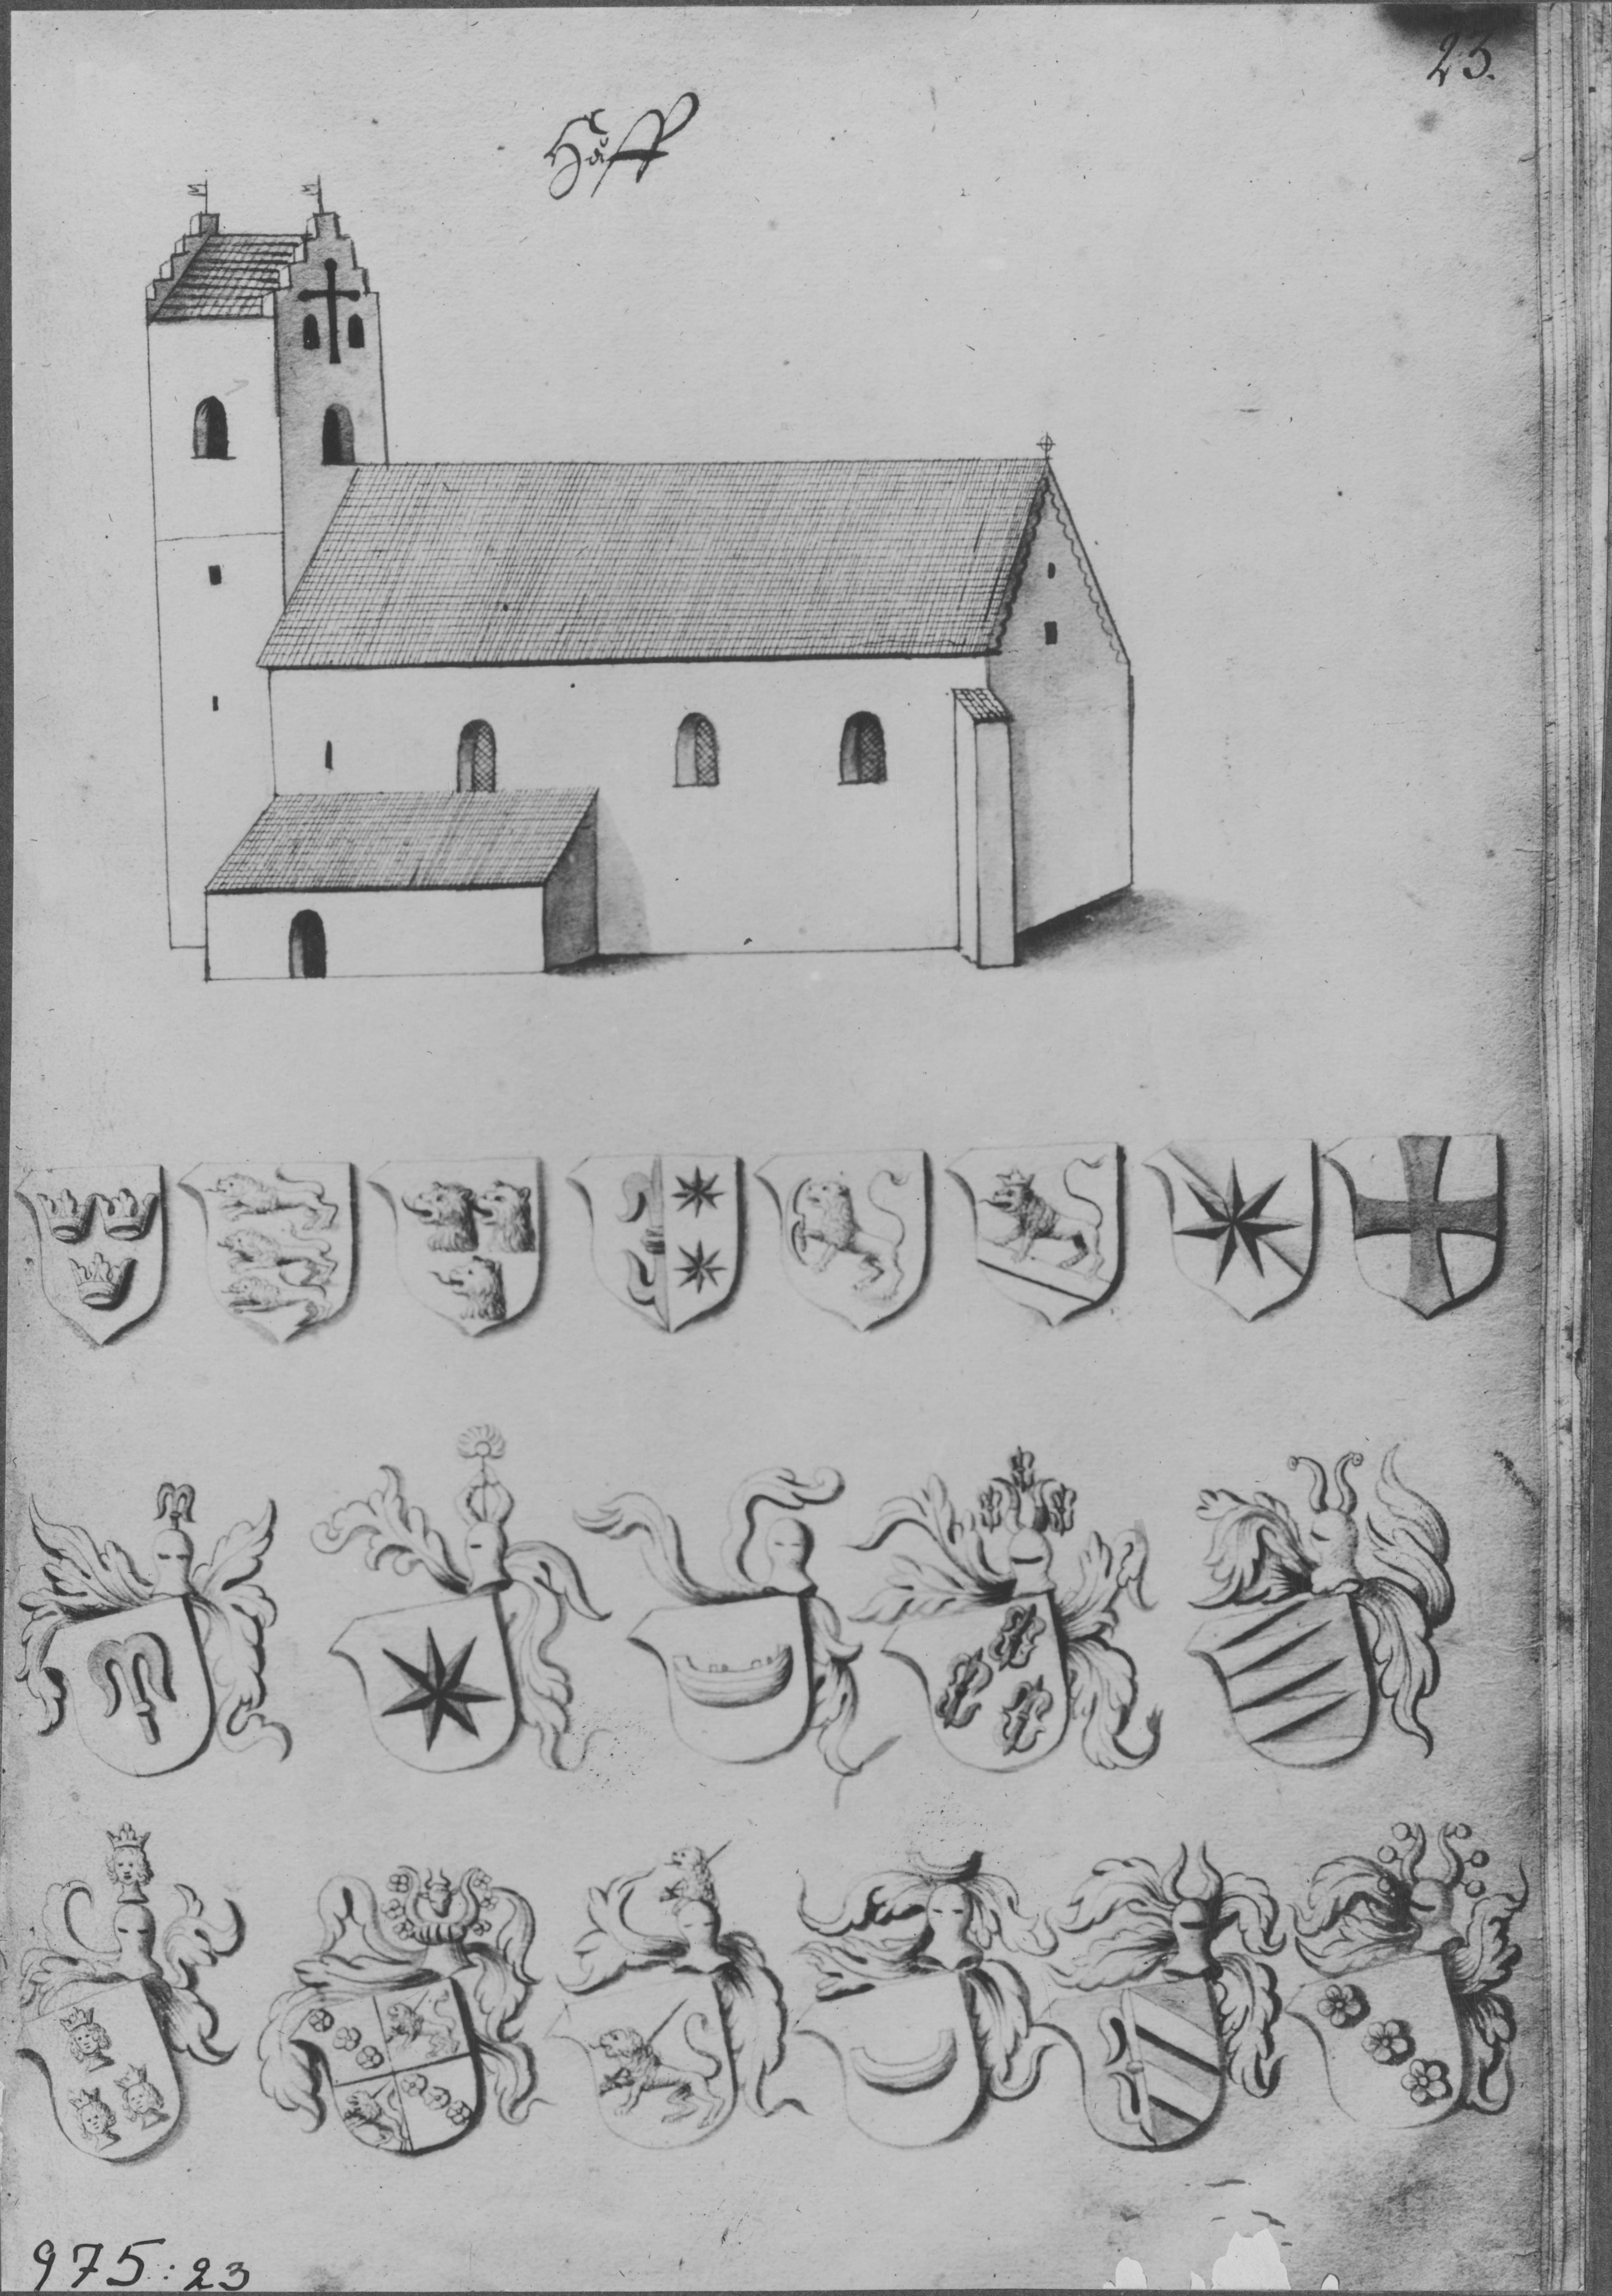 23.
Håff
975:23